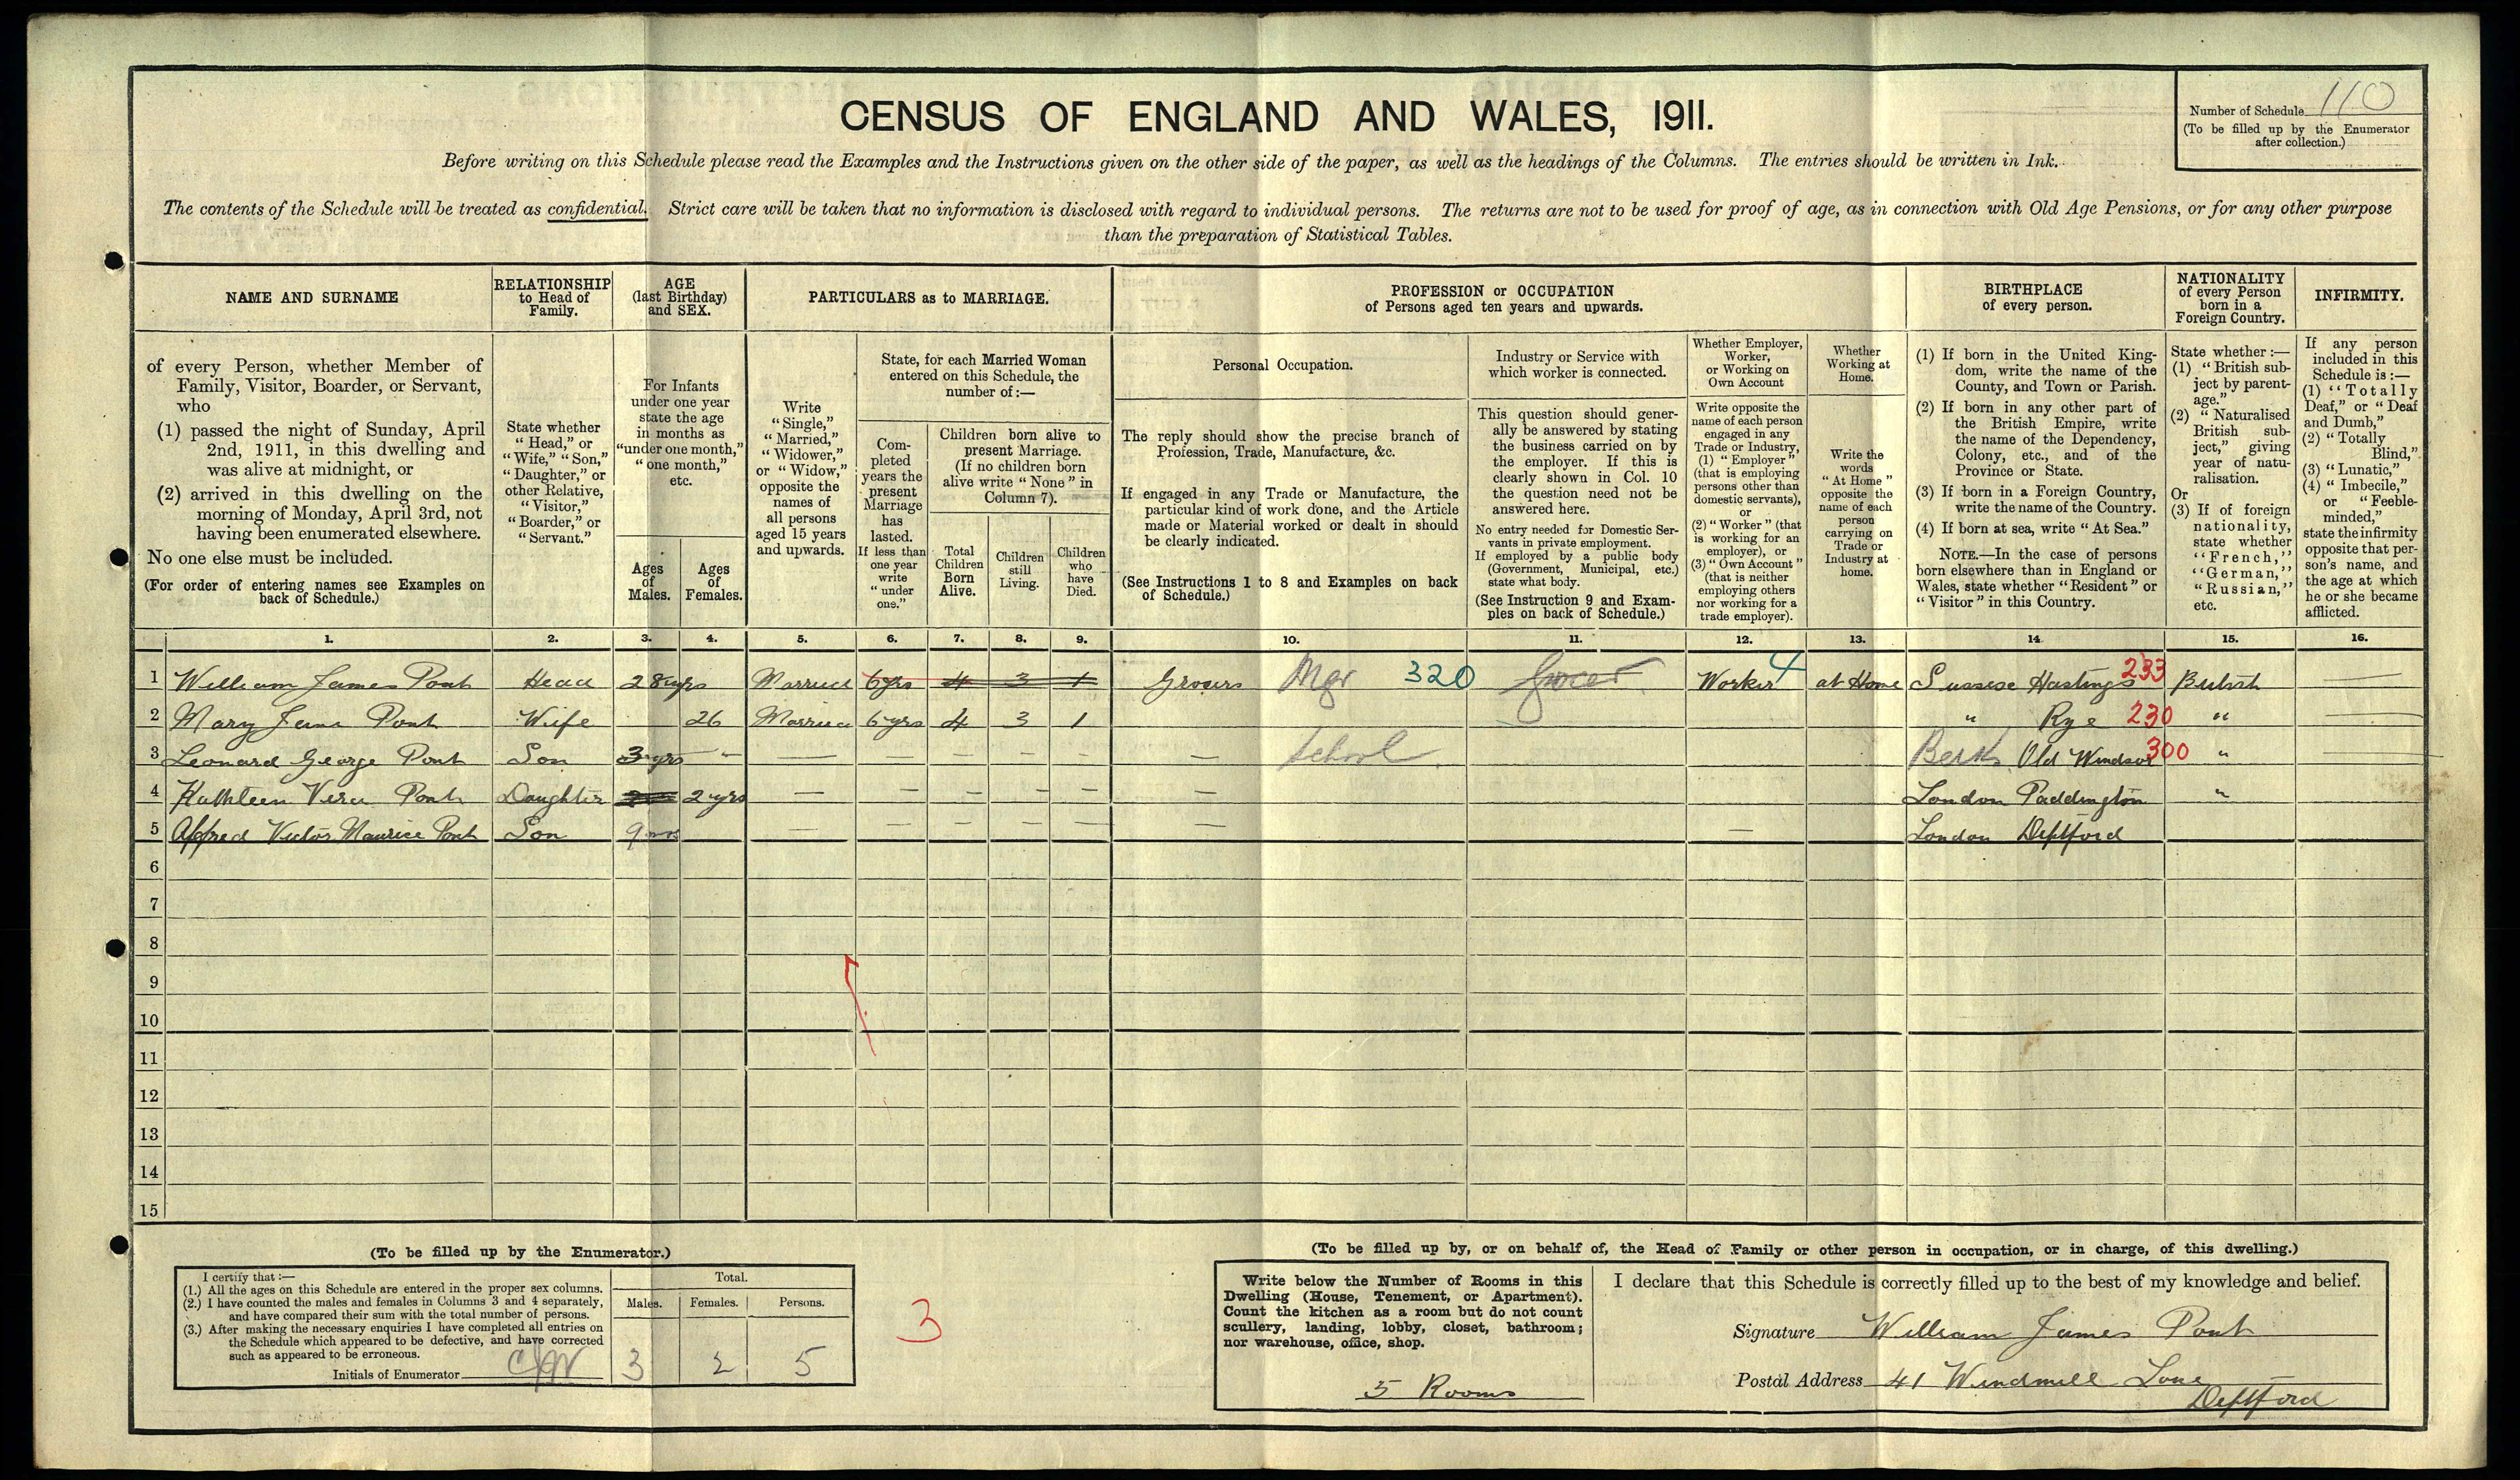 CENSUS OF ENGLAND AND WALES, 1911.
Number of Schedule 110
(To be filled up by the Enumerator
after collection.)
Before writing on this Schedule please read the Examples and the Instructions given on the other side of the paper, as well as the headings of the Columns. The entries should be written in Ink.
The contents of the Schedule will be treated as confidential. Strict care will be taken that no information is disclosed with regard to individual persons. The returns are not to be used for proof of age, as in connection with Old Age Pensions, or for any other purpose
than the preparation of Statistical Tables.
NAME AND SURNAME
RELATIONSHIP
to Head of
Family.
AGE
(last Birthday)
and SEX.
PARTICULARS as to MARRIAGE.
PROFESSION or OCCUPATION
of Persons aged ten years and upwards.
BIRTHPLACE
of every person.
NATIONALITY
of every Person
born in a
Foreign Country.
INFIRMITY.
of every Person, whether Member of
Family, Visitor, Boarder, or Servant,
who
(1) passed the night of Sunday, April
2nd, 1911, in this dwelling and
was alive at midnight, or
(2) arrived in this dwelling on the
morning of Monday, April 3rd, not
having been enumerated elsewhere.
No one else must be included.
(For order of entering names see Examples on
back of Schedule.)
State whether
"Head," or
"Wife," "Son,"
"Daughter," or
other Relative,
"Visitor,"
"Boarder," or
"Servant."
For Infants
under one year
state the age
in months as
"under one month,"
"one month,"
etc.
Ages
of
Males.
Ages
of
Females.
Write
"Single,"
"Married,"
"Widower,"
or "Widow,"
opposite the
names of
all persons
aged 15 years
and upwards.
State, for each Married Woman
entered on this Schedule, the
number of :—
Com-
pleted
years the
present
Marriage
has
lasted.
If less than
one year
write
"under
one."
Children born alive to
present Marriage.
(If no children born
alive write "None" in
Column 7).
Total
Children
Born
Alive.
Children
still
Living.
Children
who
have
Died.
Personal Occupation.
The reply should show the precise branch of
Profession, Trade, Manufacture, &c.
If engaged in any Trade or Manufacture, the
particular kind of work done, and the Article
made or Material worked or dealt in should
be clearly indicated.
(See Instructions 1 to 8 and Examples on back
of Schedule.)
Industry or Service with
which worker is connected.
This question should gener-
ally be answered by stating
the business carried on by
the employer. If this is
clearly shown in Col. 10
the question need not be
answered here.
No entry needed for Domestic Ser-
vants in private employment.
If employed by a public body
(Government, Municipal, etc.)
state what body.
(See Instruction 9 and Exam-
ples on back of Schedule.)
Whether Employer,
Worker,
or Working on
Own Account
Write opposite the
name of each person
engaged in any
Trade or Industry,
(1) "Employer"
(that is employing
persons other than
domestic servants),
or
(2) "Worker" (that
is working for an
employer), or
(3) "Own Account"
(that is neither
employing others
nor working for a
trade employer).
Whether
Working at
Home.
Write the
words
"At Home"
opposite the
name of each
person
carrying on
Trade or
Industry at
home.
(1) If born in the United King-
dom, write the name of the
County, and Town or Parish.
(2) If born in any other part of
the British Empire, write
the name of the Dependency,
Colony, etc., and of the
Province or State.
(3) If born in a Foreign Country,
write the name of the Country.
(4) If born at sea, write "At Sea."
NOTE.—In the case of persons
born elsewhere than in England or
Wales, state whether "Resident" or
"Visitor" in this Country.
State whether :—
(1) "British sub-
ject by parent-
age."
(2) "Naturalised
British sub-
ject," giving
year of natu-
ralisation.
Or
(3) If of foreign
nationality,
state whether
"French,"
"German,"
"Russian,"
etc.
If any person
included in this
Schedule is :—
(1) "Totally
Deaf," or "Deaf
and Dumb,"
(2) "Totally
Blind,"
(3) "Lunatic,"
(4) "Imbecile,"
or "Feeble-
minded,"
state the infirmity
opposite that per-
son's name, and
the age at which
he or she became
afflicted.
1. 2. 3. 4. 5. 6. 7. 8. 9. 10. 11. 12. 13. 14 15. 16.
1 William James Pont Head 28 yrs Married 6 yrs 4 3 1 Grosers Mgr 320 Grocer Worker 4 at Home Sussex Hastings 233 British
2 Mary Jane Pont Wife 26 Married 6 yrs 4 3 1 " Rye 230 "
3 Leonard George Pont Son 3 yrs - — — — — — — School Berks Old Windsor 300 "
4 Kathleen Vera Pont Daughter 2 yrs — — — — — — London Paddington "
5 Alfred Victor Maurice Pont Son 9 mos — — — — — — — London Deptford
6
7
8
9
10
11
12
13
14
15
(To be filled up by the Enumerator.)
I certify that :—
(1.) All the ages on this Schedule are entered in the proper sex columns.
(2.) I have counted the males and females in Columns 3 and 4 separately,
and have compared their sum with the total number of persons.
(3.) After making the necessary enquiries I have completed all entries on
the Schedule which appeared to be defective, and have corrected
such as appeared to be erroneous.
Initials of Enumerator
Total.
Males. Females. Persons.
3 2 5
3
(To be filled up by, or on behalf of, the Head of Family or other person in occupation, or in charge, of this dwelling.)
Write below the Number of Rooms in this
Dwelling (House, Tenement, or Apartment).
Count the kitchen as a room but do not count
scullery, landing, lobby, closet, bathroom;
nor warehouse, office, shop.
5 Rooms
I declare that this Schedule is correctly filled up to the best of my knowledge and belief.
Signature William James Pont
Postal Address 41 Windmill Lane
Deptford